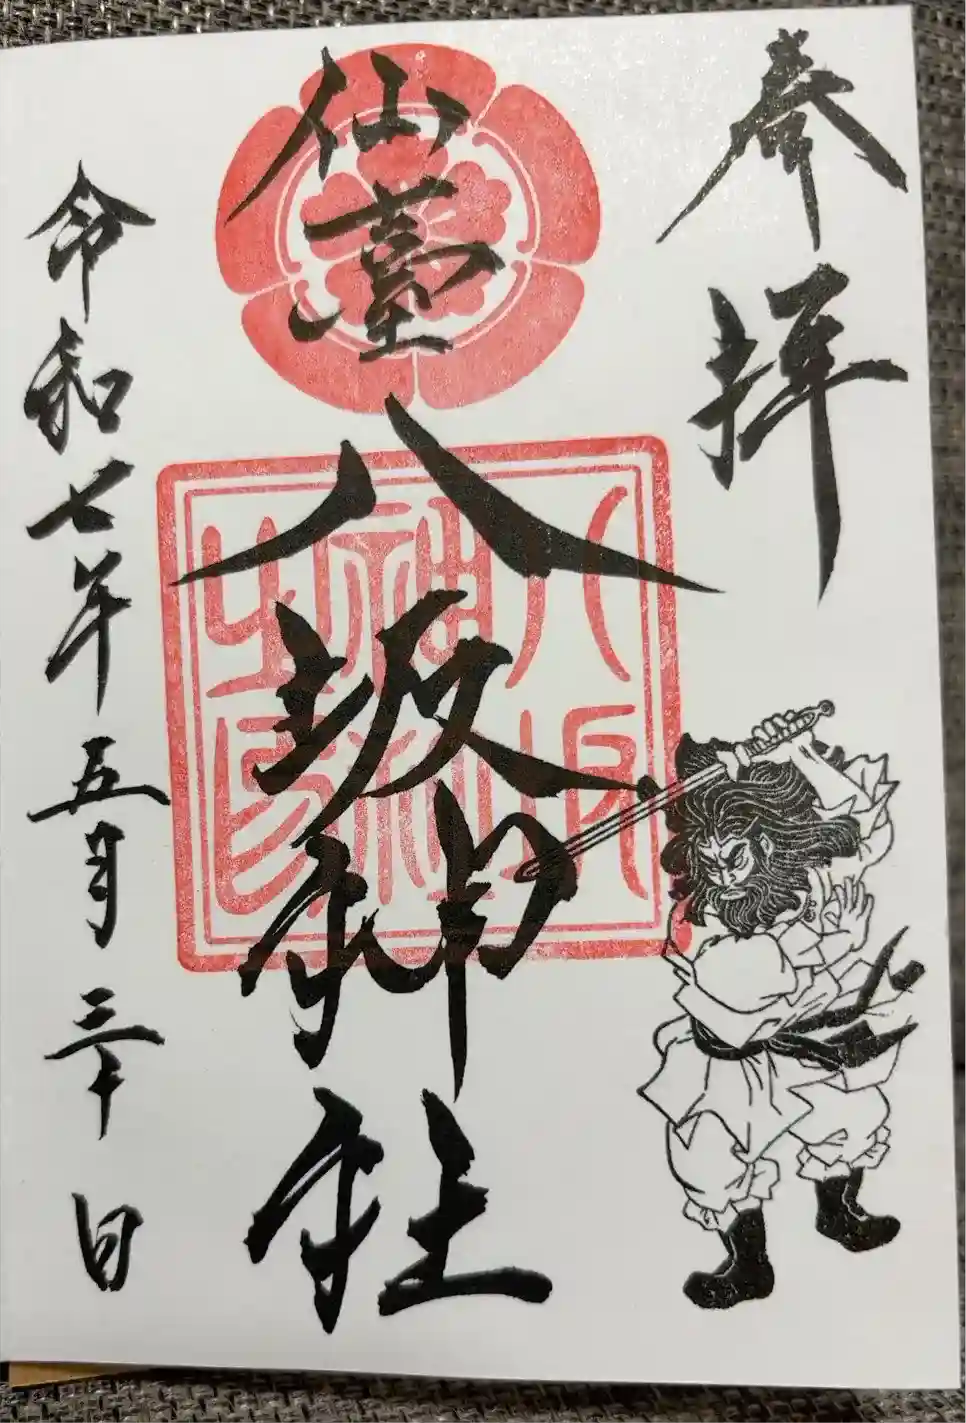 奉拝
仙臺
八坂神社
八坂
神社
之印
令和七年五月三十日